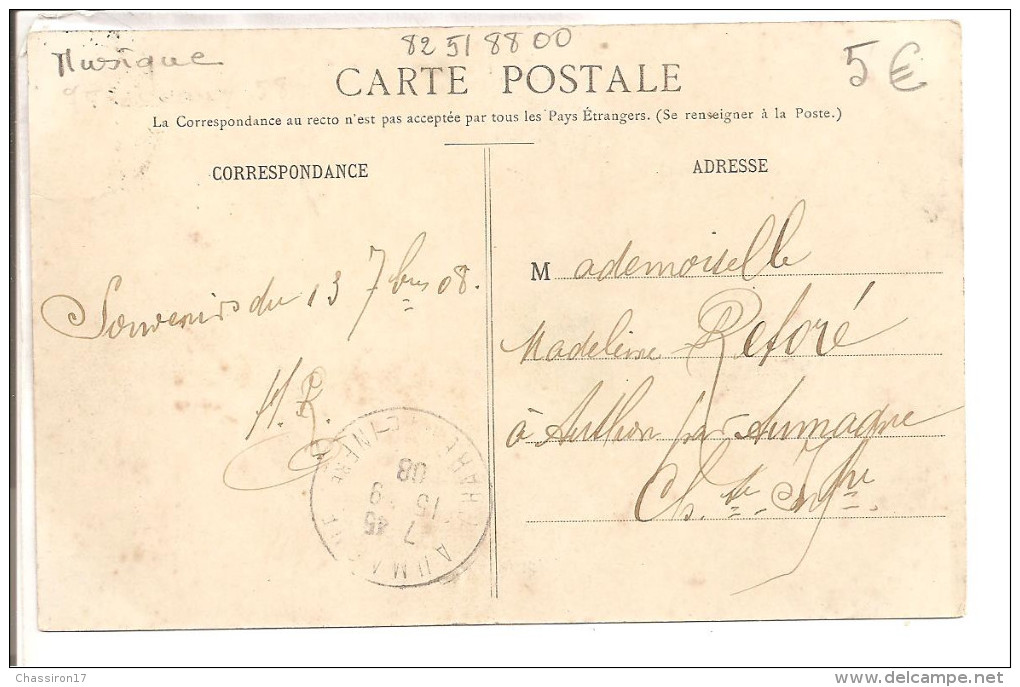 Musique
82 51 88 00
5€
CARTE POSTALE
La Correspondance au recto n'est pas acceptée par tous les Pays Étrangers. (Se renseigner à la Poste.)
CORRESPONDANCE
Souvenirs du 13 7bre 08.
H. R.
ADRESSE
Mademoiselle
Madeleine Reforé
à Authon par Aumagne
Ch.te Infre.
7 45
15 9
08
Chassiron17
www.delcampe.net